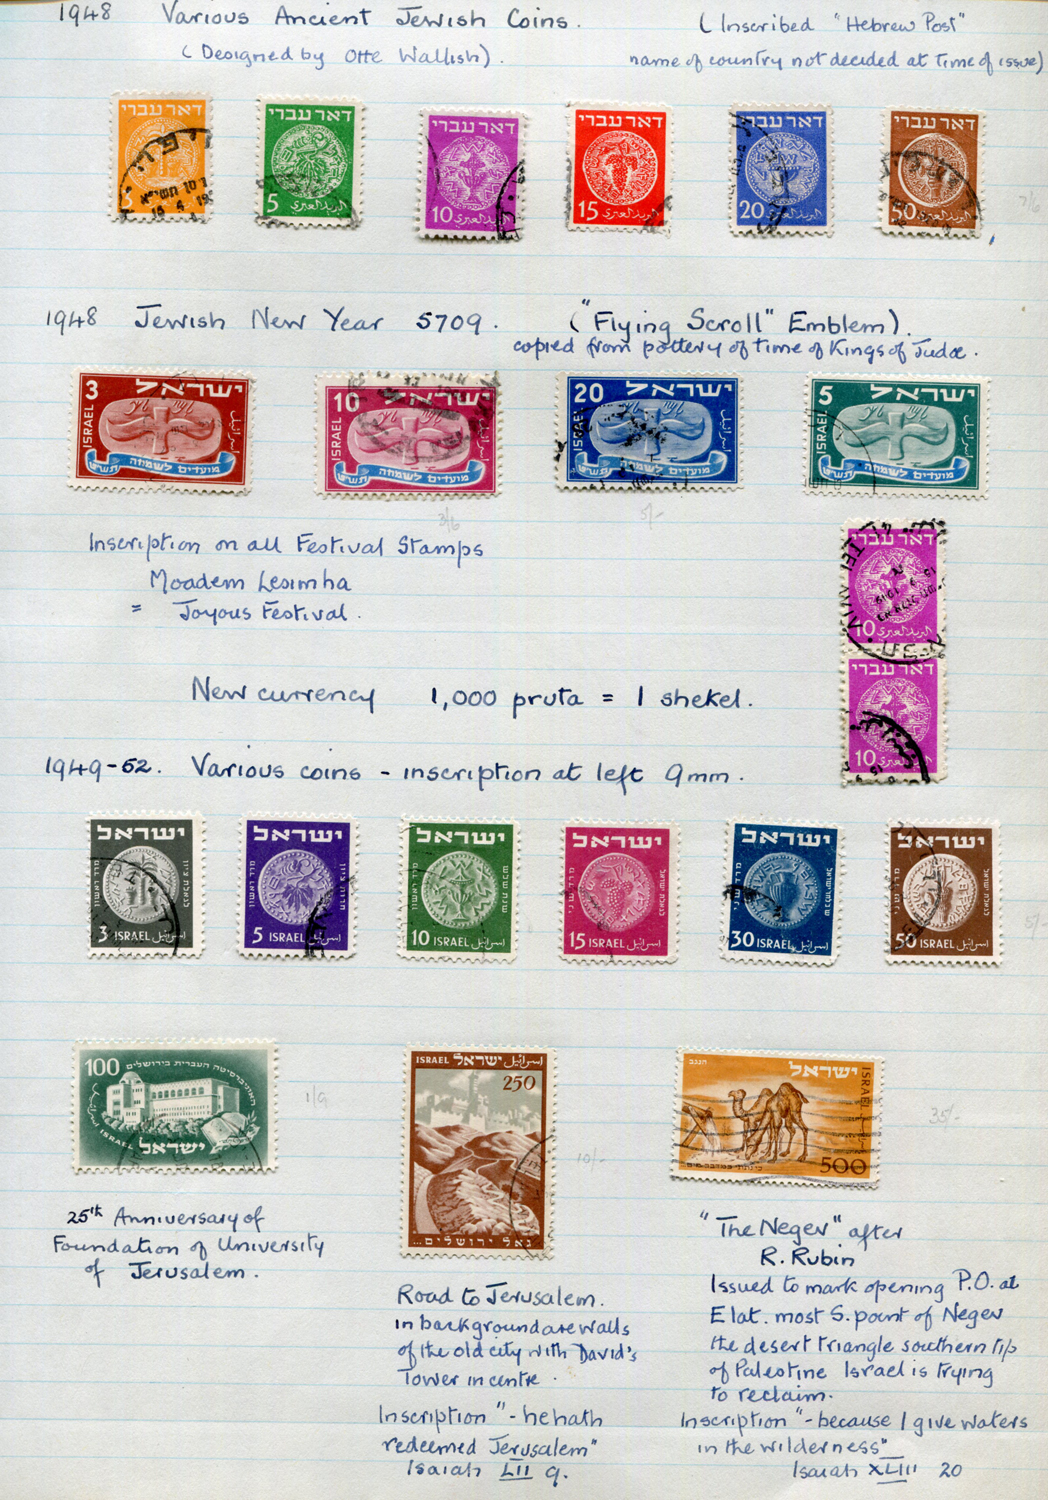 1948 Various Ancient Jewish Coins.
(Designed by Otte Wallish).
(Inscribed "Hebrew Post"
name of country not decided at time of issue)
דאר עברי
3
דאר עברי
5 البريد العبري
דאר עברי
10 البريد العبري
דאר עברי
15 البريد العبري
דאר עברי
20 البريد العبري
דאר עברי
50 البريد العبري
7/6
1948 Jewish New Year 5709.
("Flying Scroll" Emblem).
copied from pottery of time of Kings of Judæ.
3 ישראל
ISRAEL
اسرائيل
מועדים לשמחה תש״ט
10 ישראל
ISRAEL
اسرائيل
מועדים לשמחה תש״ט
20 ישראל
ISRAEL
اسرائيل
מועדים לשמחה תש״ט
5 ישראל
ISRAEL
اسرائيل
מועדים לשמחה תש״ט
3/6
5/-
Inscription on all Festival Stamps
Moadem Lesimha
= Joyous Festival.
דאר עברי
10 البريد العبري
דאר עברי
10
New currency 1,000 pruta = 1 shekel.
1949-52. Various coins - inscription at left 9mm.
ישראל
3 ISRAEL اسرائيل
ישראל
5 ISRAEL اسرائيل
ישראל
10 ISRAEL اسرائيل
ישראל
15 ISRAEL اسرائيل
ישראל
30 ISRAEL اسرائيل
ישראל
50 ISRAEL اسرائيل
5/-
100 האוניברסיטה העברית בירושלים
ISRAEL
ישראל
1/9
25th Anniversary of
Foundation of University
of Jerusalem.
ISRAEL ישראל اسرائيل
250
גאל ירושלים...
10/-
Road to Jerusalem.
in background are walls
of the old city with David's
Tower in centre.
Inscription "- he hath
redeemed Jerusalem"
Isaiah LII 9.
הנגב
ישראל
ISRAEL
500
35/-
"The Negev" after
R. Rubin
Issued to mark opening P.O. at
Elat. most S. point of Negev
the desert triangle southern tip
of Palestine Israel is trying
to reclaim.
Inscription "- because I give waters
in the wilderness"
Isaiah XLIII 20